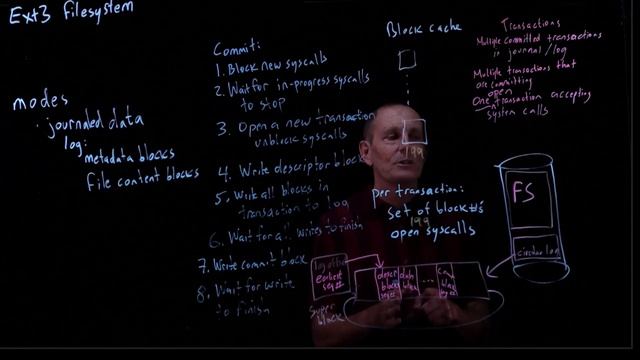 Ext3 Filesystem
modes
· journaled data
log:
metadata blocks
file content blocks
Commit:
1. Block new syscalls
2. Wait for in-progress syscalls
to stop
3. Open a new transaction
unblock syscalls
4. Write descriptor block
5. Write all blocks in
transaction to log
6. Wait for all writes to finish
7. Write commit block
8. Wait for write
to finish
Block cache
199
per transaction:
set of block #s
199
open syscalls
Transactions
Multiple committed transactions
in journal/log
Multiple transactions that
are committing
open
One transaction accepting
system calls
FS
circular log
log offset
earliest
seq#
Super
block
descr
block
seq#
data
block
...
com
block
seq#